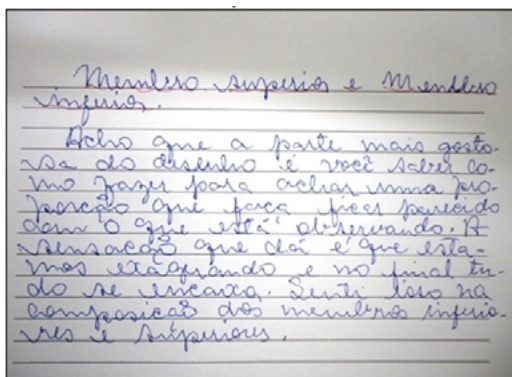 Membro superior e Membro
inferior.
Acho que a parte mais gosto-
sa do desenho é você saber co-
mo fazer para achar uma pro-
porção que faça ficar parecido
com o que está observando. A
sensação que dá é que esta-
mos exagerando e no final tu-
do se encaixa. Senti isso na
composição dos membros inferio-
res e superiores.